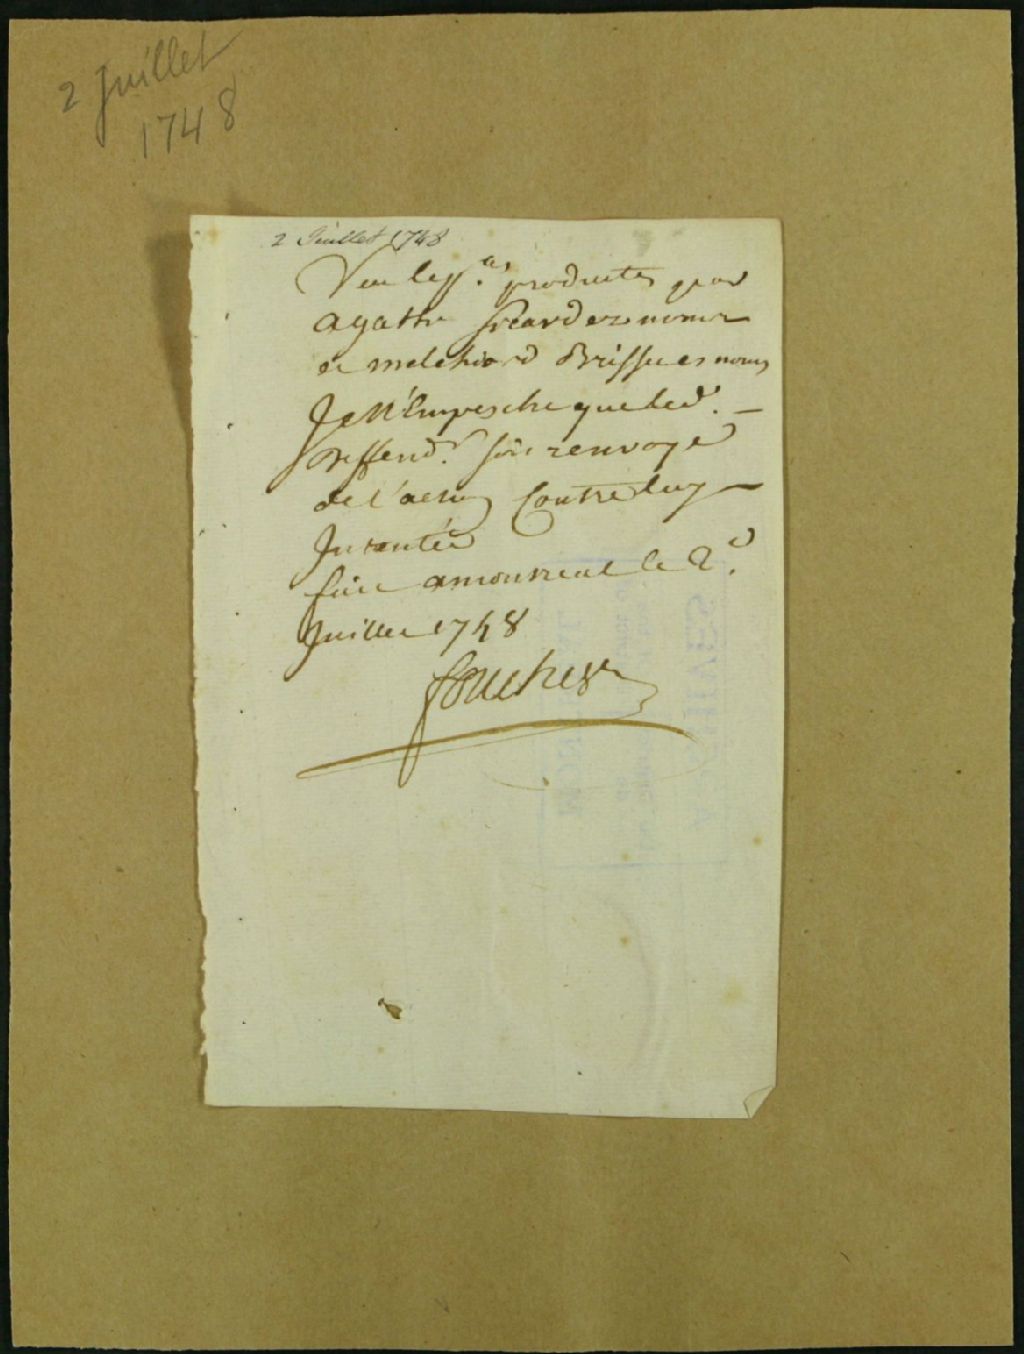 2 Juillet
1748
2 Juillet 1748
Veu les p.es produites par
agathe sicard es noms
et melchiord Brissu es noms
Je N'Empesche que led.
Deffend.r soit renvoyé
de l'action Contre luy
Intentée
fait a monreal le 2.e
Juillet 1748
foucher
ARCHIVES
MONTREAL